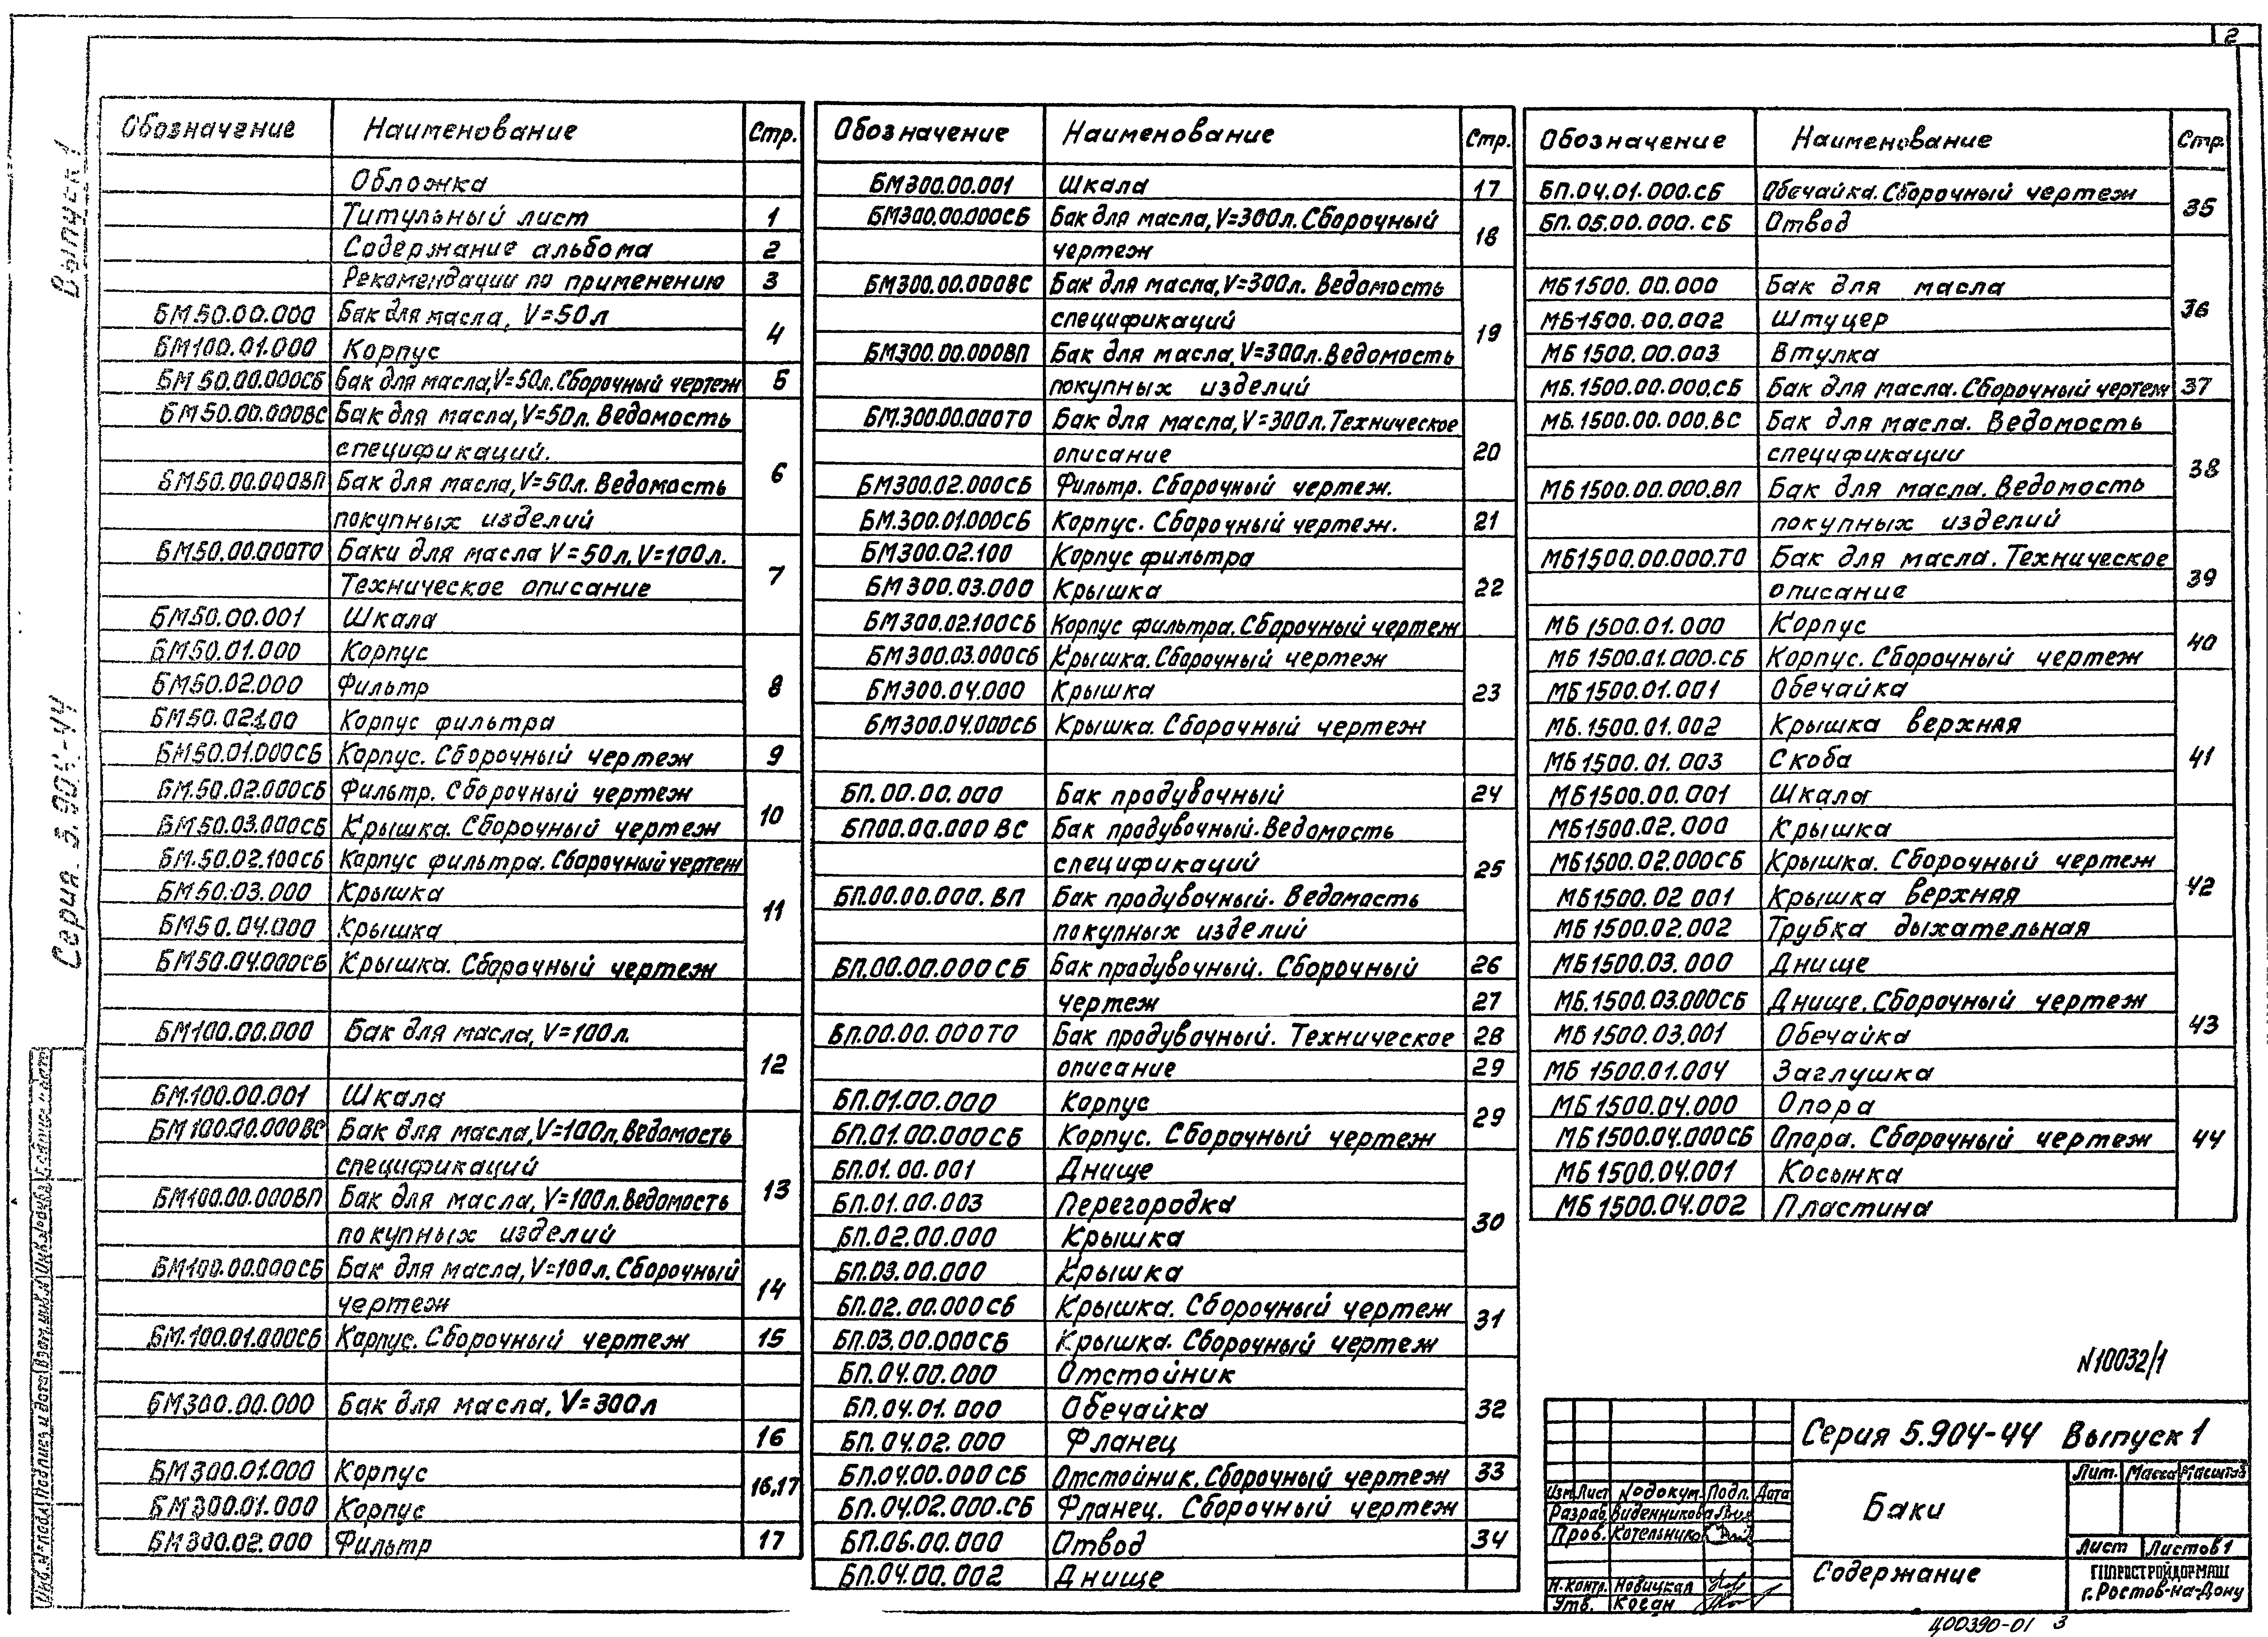 2
Выпуск 1
Серия. 5.904-44
Обозначение Наименование Стр.
Обложка
Титульный лист 1
Содержание альбома 2
Рекомендации по применению 3
БМ50.00.000 Бак для масла, V=50л
4
БМ100.01.000 Корпус
БМ50.00.000СБ Бак для масла,V=50л.Сборочный чертеж 5
БМ50.00.000ВС Бак для масла,V=50л. Ведомость
спецификаций.
6
БМ50.00.000ВП Бак для масла,V=50л. Ведомость
покупных изделий
БМ50.00.000ТО Баки для масла V=50л,V=100л.
7
Техническое описание
БМ50.00.001 Шкала
БМ50.01.000 Корпус
БМ50.02.000 Фильтр 8
БМ50.02.100 Корпус фильтра
БМ50.01.000СБ Корпус. Сборочный чертеж 9
БМ.50.02.000СБ Фильтр. Сборочный чертеж
10
БМ50.03.000СБ Крышка. Сборочный чертеж
БМ.50.02.100СБ Корпус фильтра.Сборочный чертеж
БМ50.03.000 Крышка
11
БМ50.04.000 Крышка
БМ50.04.000СБ Крышка. Сборочный чертеж
БМ100.00.000 Бак для масла, V=100л.
12
БМ.100.00.001 Шкала
БМ100.00.000ВС Бак для масла,V=100л.Ведомость
спецификаций
13
БМ100.00.000ВП Бак для масла, V=100л.Ведомость
покупных изделий
БМ100.00.000СБ Бак для масла,V=100л. Сборочный
14
чертеж
БМ.100.01.000СБ Корпус. Сборочный чертеж 15
БМ300.00.000 Бак для масла, V=300л
16
БМ300.01.000 Корпус
16,17
БМ300.01.000 Корпус
БМ300.02.000 Фильтр 17
Обозначение Наименование Стр.
БМ300.00.001 Шкала 17
БМ300.00.000СБ Бак для масла, V=300л. Сборочный
18
чертеж
БМ300.00.000ВС Бак для масла,V=300л. Ведомость
спецификаций
19
БМ300.00.000ВП Бак для масла, V=300л.Ведомость
покупных изделий
БМ.300.00.000ТО Бак для масла, V=300л.Техническое
описание 20
БМ300.02.000СБ Фильтр. Сборочный чертеж.
БМ.300.01.000СБ Корпус. Сборочный чертеж. 21
БМ300.02.100 Корпус фильтра
БМ300.03.000 Крышка 22
БМ300.02.100СБ Корпус фильтра.Сборочный чертеж
БМ300.03.000СБ Крышка.Сборочный чертеж
БМ300.04.000 Крышка 23
БМ300.04.000СБ Крышка. Сборочный чертеж
БП.00.00.000 Бак продувочный 24
БП00.00.000 ВС Бак продувочный.Ведомость
спецификаций
25
БП.00.00.000. ВП Бак продувочный. Ведомость
покупных изделий
БП.00.00.000 СБ Бак продувочный. Сборочный 26
чертеж 27
БП.00.00.000ТО Бак продувочный. Техническое 28
описание 29
БП.01.00.000 Корпус
29
БП.01.00.000СБ Корпус. Сборочный чертеж
БП.01.00.001 Днище
БП.01.00.003 Перегородка
30
БП.02.00.000 Крышка
БП.03.00.000 Крышка
БП.02.00.000СБ Крышка. Сборочный чертеж
31
БП.03.00.000СБ Крышка. Сборочный чертеж
БП.04.00.000 Отстойник
БП.04.01.000 Обечайка 32
БП.04.02.000 Фланец
БП.04.00.000 СБ Отстойник.Сборочный чертеж 33
БП.04.02.000.СБ Фланец. Сборочный чертеж
БП.06.00.000 Отвод 34
БП.04.00.002 Днище
Обозначение Наименование Стр.
БП.04.01.000.СБ Обечайка.Сборочный чертеж
35
БП.05.00.000.СБ Отвод
МБ1500.00.000 Бак для масла
МБ1500.00.002 Штуцер 36
МБ1500.00.003 Втулка
МБ.1500.00.000.СБ Бак для масла.Сборочный чертеж 37
МБ.1500.00.000.ВС Бак для масла. Ведомость
спецификации
38
МБ1500.00.000.ВП Бак для масла. Ведомость
покупных изделий
МБ1500.00.000.ТО Бак для масла. Техническое
39
описание
МБ 1500.01.000 Корпус
40
МБ 1500.01.000.СБ Корпус. Сборочный чертеж
МБ1500.01.001 Обечайка
МБ.1500.01.002 Крышка верхняя
41
МБ1500.01.003 Скоба
МБ1500.00.001 Шкала
МБ1500.02.000 Крышка
МБ1500.02.000СБ Крышка. Сборочный чертеж
42
МБ1500.02 001 Крышка верхняя
МБ1500.02.002 Трубка дыхательная
МБ1500.03.000 Днище
МБ.1500.03.000СБ Днище. Сборочный чертеж
43
МБ1500.03.001 Обечайка
МБ 1500.01.004 Заглушка
МБ1500.04.000 Опора
МБ1500.04.000СБ Опора. Сборочный чертеж 44
МБ1500.04.001 Косынка
МБ1500.04.002 Пластина
N10032/1
Серия 5.904-44 Выпуск 1
Лит. Масса Масштаб
Баки
Изм Лист №докум. Подп. Дата
Разраб. Виденникова
Пров. Котельнико
Лист Листов 1
Содержание
ГИПРОСТРОЙДОРМАШ
г. Ростов-на-Дону
Н.контр. Новицкая
Утв. Коган
Инв.№подл Подпись и дата Взам.инв.№ Инв.№дубл. Подпись и дата
Ц00390-01 3